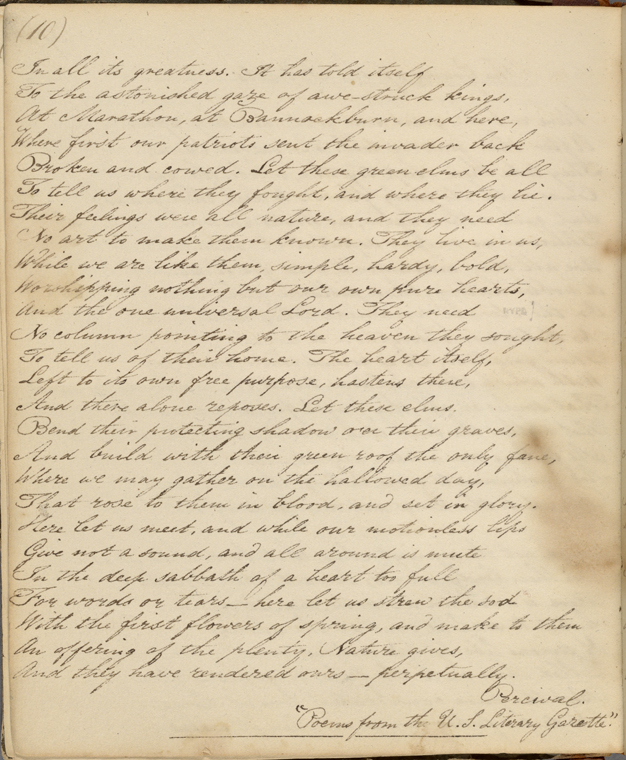 (10)
In all its greatness. It has told itself
To the astonished gaze of awe-struck kings,
At Marathon, at Bannockburn, and here,
Where first our patriots sent the invader back
Broken and cowed. Let these green elms be all
To tell us where they fought, and where they lie.
Their feelings were all nature, and they need
No art to make them known. They live in us,
While we are like them, simple, hardy, bold,
Worshipping nothing but our own pure hearts,
And the one universal Lord. They need
No column pointing to the heaven they sought,
To tell us of their home. The heart itself,
Left to its own free purpose, hastens there,
And there alone reposes. Let these elms
Bend their protecting shadow o'er their graves,
And build with their green roof the only fane,
Where we may gather on the hallowed day,
That rose to them in blood, and set in glory.
Here let us meet, and while our motionless lips
Give not a sound, and all around is mute
In the deep sabbath of a heart too full
For words or tears — here let us strew the sod
With the first flowers of spring, and make to them
An offering of the plenty, Nature gives,
And they have rendered ours — perpetually.
Percival.
"Poems from the U. S. Literary Gazette."